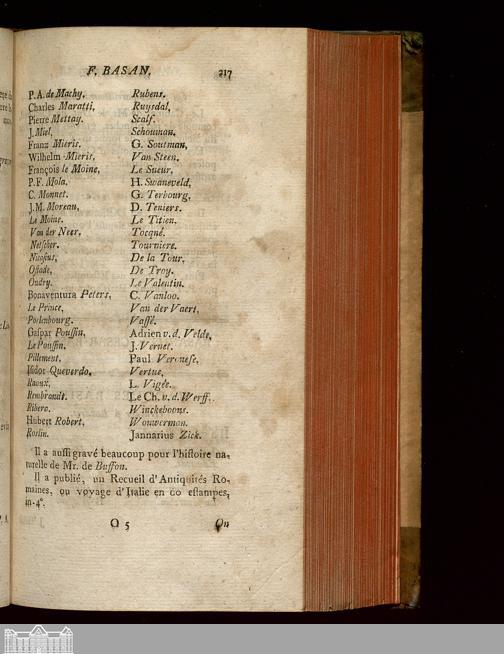 F. BASAN. 217
P. A. de Machy,
Charles Maratti,
Pierre Mettay.
J. Miel,
Franz Mieris,
Wilhelm Mieris,
François le Moine,
P. F. Mola,
C. Monnet.
J. M. Moreau,
Le Moine.
Van der Neer,
Netscher.
Nicasius,
Ostade,
Oudry.
Bonaventura Peters,
Le Prince,
Poelenbourg.
Gaspar Poussin,
Le Poussin,
Pillement,
Isidor Queverdo,
Raoux,
Rembrandt.
Ribera.
Hubert Robert,
Roslin.
Rubens.
Ruysdal,
Scalf.
Schouman.
G. Soutman,
Van Steen.
Le Sueur,
H. Swaneveld,
G. Terbourg,
D. Teniers.
Le Titien.
Tocqué.
Tourniere.
De la Tour,
De Troy.
Le Valentin.
C. Vanloo.
Van der Vaert,
Vassé.
Adrien v. d. Velde,
J. Vernet.
Paul Veronese.
Vertue,
L. Vigée.
Le Ch. v. d. Werff.
Winckeboons.
Wouwerman.
Jannarius Zick.
Il a aussi gravé beaucoup pour l'histoire na-
turelle de Mr. de Buffon.
Il a publié, un Recueil d'Antiquités Ro-
maines, ou voyage d'Italie en 60 estampes,
in-4°.
O 5 On